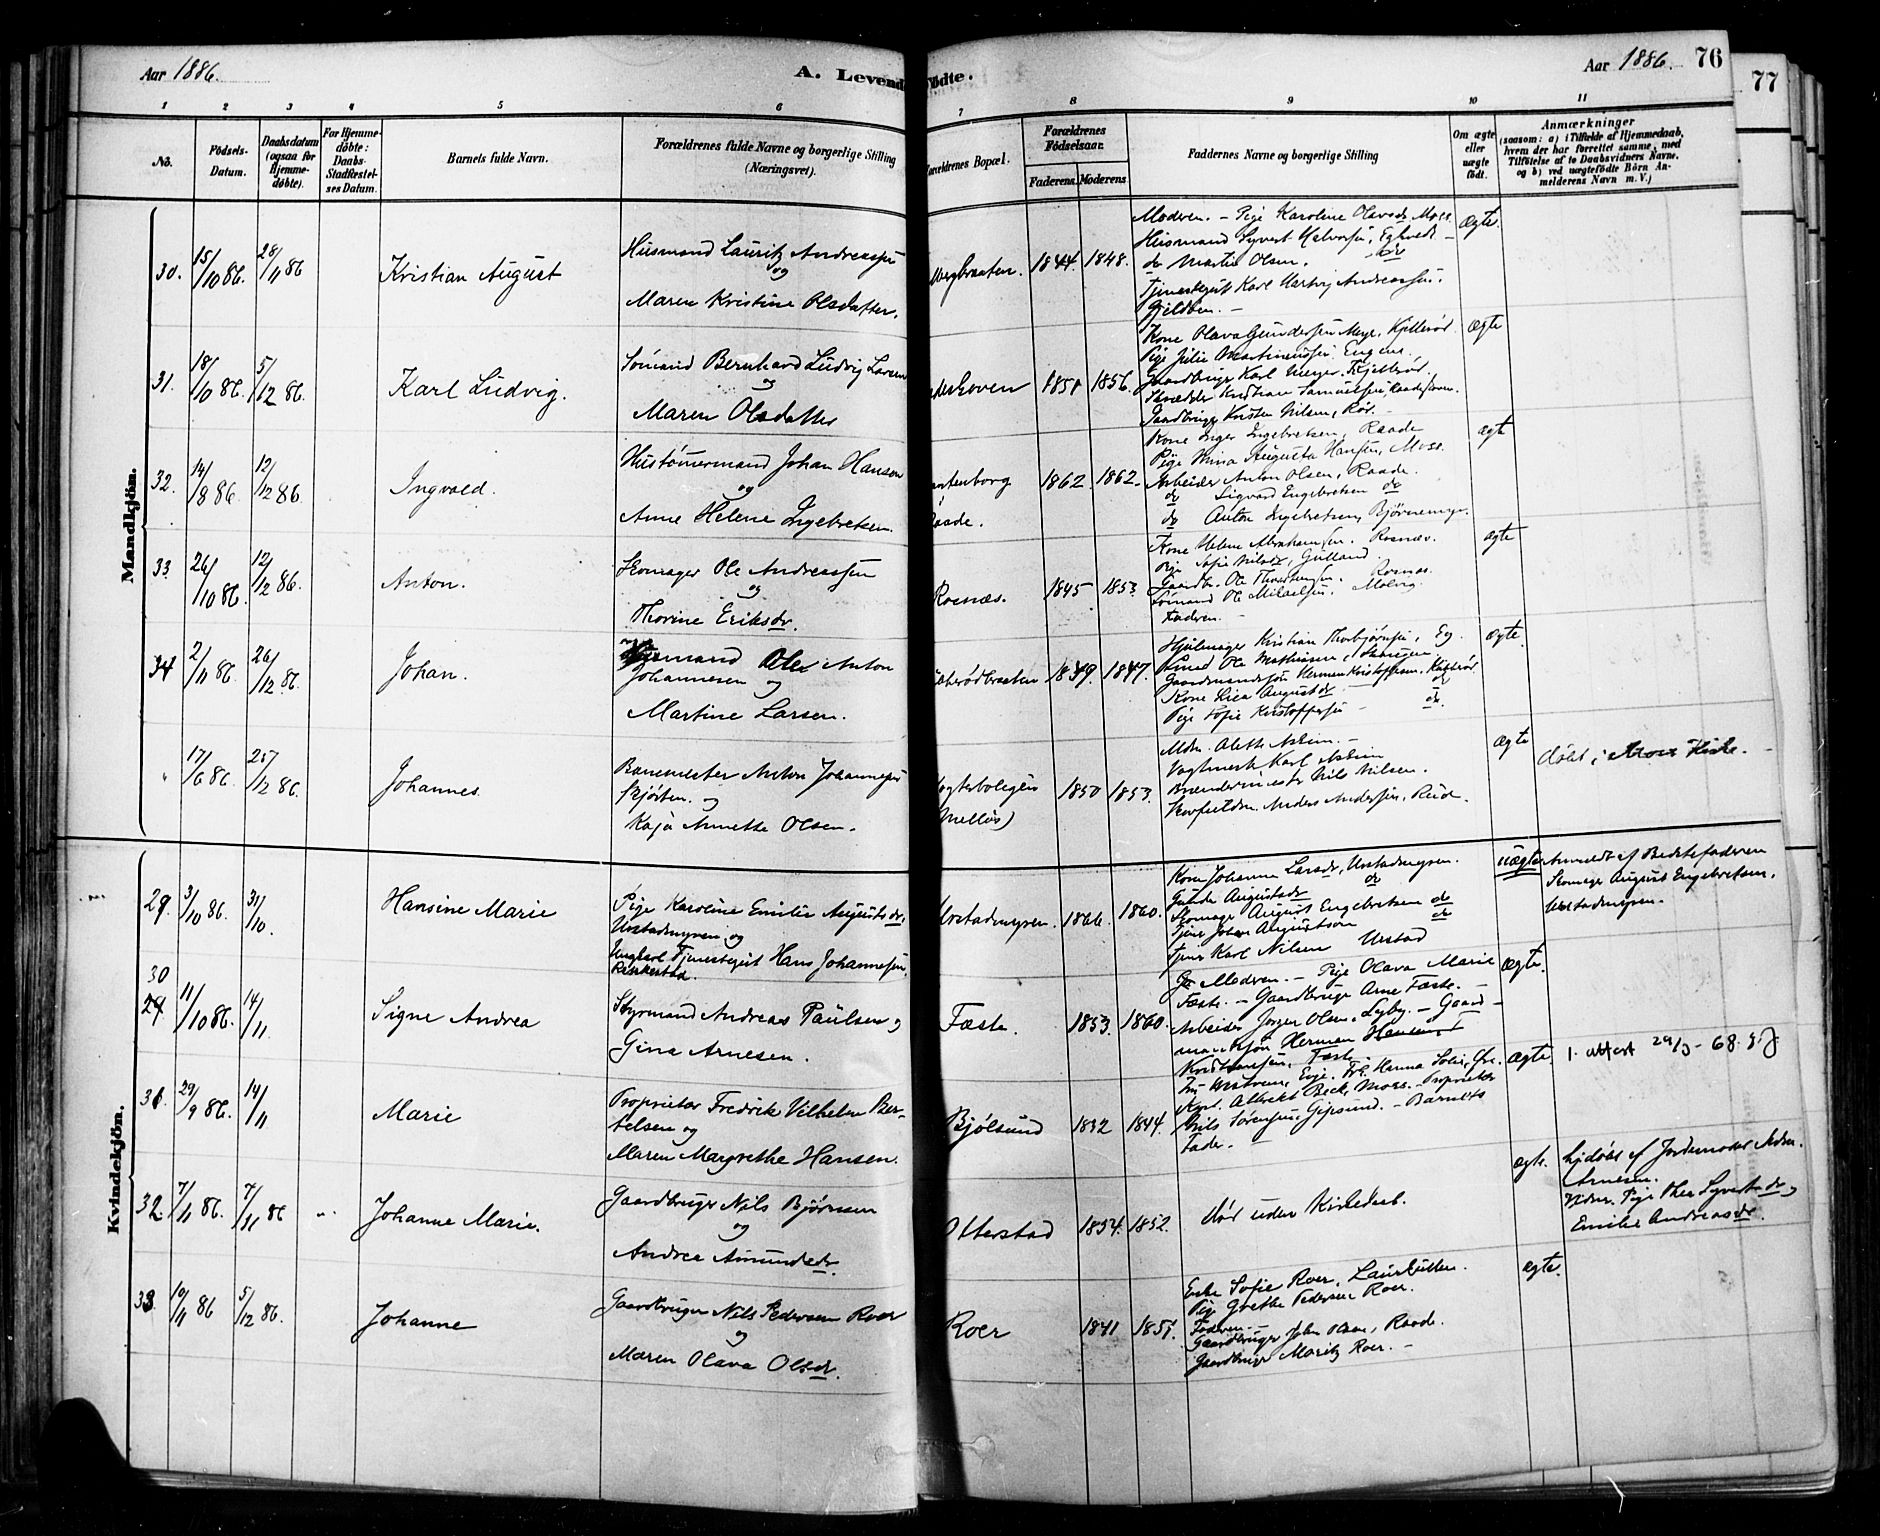 Aar 1886.
A. Levend
fødte.
Aar 1886. 76
77
1 2 3 4 5 6 7 8 9 10 11
No.
Födsels-
Datum.
Daabsdatum
(ogsaa for
Hjemme-
döbte).
For Hjemme-
döbte:
Daabs-
Stadfæstel-
ses Datum.
Barnets fulde Navn.
Forældrenes fulde Navne og borgerlige Stilling
(Næringsvei).
Forældrenes Bopæl.
Forældrenes
Födselsaar.
Faderens. Moderens.
Faddernes Navne og borgerlige Stilling
Om ægte
eller
uægte
födt.
Anmærkninger
(saasom: a) i Tilfælde af Hjemmedaab,
hvem der har forrettet samme, med
Tilföielse af to Daabsvidners Navne,
og b) ved uægtefödte Börn An-
melderens Navn m. V.)
Mandkjön.
30. 15/10 86. 28/11 86 Kristian August
Husmand Lauritz Andreassen
og
Maren Kristine Olsdatter.
1844. 1848.
Moderen. – Pige Karoline Olavsdr, Moss.
Husmand Syvert Halvorsen,
do Martin Olsen. do
Tjenestegut Karl Hartvig Andreassen.
Ægte.
31. 18/10 86. 5/12 86. Karl Ludvig.
Sömand Bernhard Ludvig Larsen
og
Maren Olsdatter
1851 1856.
Pige Julie Martinussen. Engene.
Gaardbruger Karl Meyer.
Skrædder Kristian Samuelsen,
Gaardbruger Kristen Nilsen, Rör. –
Ægte
32. 14/8 86. 12/12 86 Ingvald.
Hustömmermand Johan Hansen
og
Anne Helene Ingebretsen.
Raade.
1862. 1862.
Kone Inger Ingebretsen, Raade
Pige Mina Augusta Hansen, Moss.
Arbeider Anton Olsen, Raade.
do Sigvard Engebretsen do
do Anton Ingebretsen, Bjørnemyr.
ægte
33. 26/10 86. 12/12 86. Anton.
Skomager Ole Andreassen
og
Thorine Eriksdr.
Rosnæs.
1845 1853.
Kone Helene Abrahamsen. Rosnæs.
Pige Sofie Gulland.
Gaardbr. Ole Thorstensen. Rosnæs.
Sömand Ole Mikaelsen. Molvig.
Faderen. –
ægte
34 2/11 86. 26/12 86. Johan.
Anton
Johannesen og
Martine Larsen.
1849. 1847.
Hjulmager Kristian Thorbjørnsen, Eg.
Gaardmandssøn Herman Kristoffersen,
Pige Sofie Kristoffersen – do.
ægte.
" 17/6 86. 25/12 86. Johannes.
Banemester Anton Johannesen
og
Kaja Annette Olsen.
1850 1853.
Vogtmester Karl
Nils Nilsen.
Anders Andersen, Rud.
Ægte
døbt i Moss Kirke.
Kvindekjön.
29. 3/10 86. 31/10. Hansine Marie
Pige Karoline Emilie Augustsdr.
Urstadmyren og
Ungkarl Tjenestegut Hans Johannesen,
Urstadmyren. 1866. 1860.
Kone Johanne Larsdr, Urstadmyren.
Gunda Augustsdr do
Skomager August Engebretsen do
Tjener Johan Augustson do
Tjener Karl Nilsen Urstad
uægte
Anmeldt af Bedstefaderen
Skomager August Engebretsen,
Urstadmyren.
30
29 11/10 86. 14/11. Signe Andrea
Styrmand Andreas Paulsen og
Gina Arnesen.
Fæste. 1853. 1860.
Moderen. – Pige Olava Marie
Fæste. – Gaardbruger Arne Fæste. –
Arbeider Jørgen Olsen, – Gaard-
mandssøn Herman Hansen
Kristiansen, Fæste
ægte.
31. 29/9 86. 14/11 Marie
Proprietær Fredrik Vilhelm Ber-
telsen og
Maren Margrethe Hansen.
Bjølsund 1832 1844.
Albrekt Beck, Moss. – Proprietær
Nils Sørensen, Gipsund. – Barnets
Fader. –
ægte.
1. attest 29/3 - 68.
32. 7/11 86. 7/11 86 Johanne Marie.
Gaardbruger Nils Bjørnsen
og
Andrea Amundsdr.
Otterstad 1854. 1852.
død uden Kirkedaab.
ægte.
hjdøbt af Jordemoder
Arnesen.
Vidner. Pige Thea Syvertsdr og
Emilie Andreasdr.
33. 10/11 86 5/12 86. Johanne
Gaardbruger Nils Pedersen Roer
og
Maren Olava Olsdr.
Roer 1841 1851.
Enke Sofie Roer,
Pige Grethe Pedersen Roer.
Faderen. –
Gaardbruger John Olsen, Raade.
Gaardbruger Moritz Roer. –
ægte.